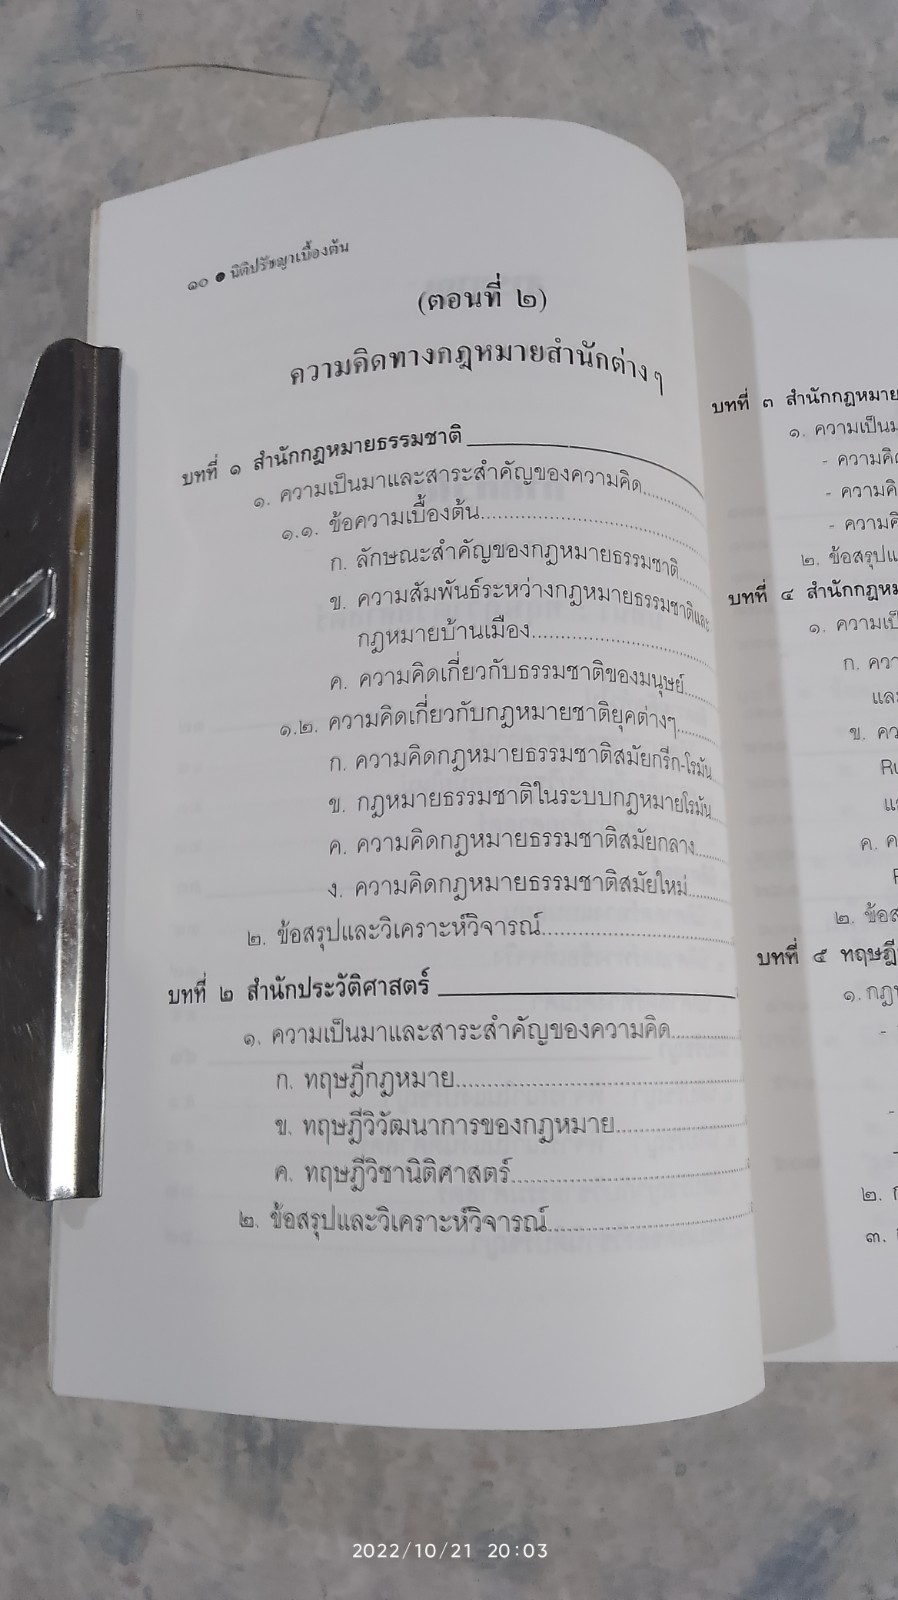 ๑๐ ● นิติปรัชญาเบื้องต้น
(ตอนที่ ๒)
ความคิดทางกฎหมายสำนักต่าง ๆ
บทที่ ๑ สำนักกฎหมายธรรมชาติ
๑. ความเป็นมาและสาระสำคัญของความคิด
๑.๑. ข้อความเบื้องต้น
ก. ลักษณะสำคัญของกฎหมายธรรมชาติ
ข. ความสัมพันธ์ระหว่างกฎหมายธรรมชาติและ
กฎหมายบ้านเมือง
ค. ความคิดเกี่ยวกับธรรมชาติของมนุษย์
๑.๒. ความคิดเกี่ยวกับกฎหมายชาติยุคต่างๆ
ก. ความคิดกฎหมายธรรมชาติสมัยกรีก-โรมัน
ข. กฎหมายธรรมชาติในระบบกฎหมายโรมัน
ค. ความคิดกฎหมายธรรมชาติสมัยกลาง
ง. ความคิดกฎหมายธรรมชาติสมัยใหม่
๒. ข้อสรุปและวิเคราะห์วิจารณ์
บทที่ ๒ สำนักประวัติศาสตร์
๑. ความเป็นมาและสาระสำคัญของความคิด
ก. ทฤษฎีกฎหมาย
ข. ทฤษฎีวิวัฒนาการของกฎหมาย
ค. ทฤษฎีวิชานิติศาสตร์
๒. ข้อสรุปและวิเคราะห์วิจารณ์
บทที่ ๓ สำนักกฎหมาย
๑. ความเป็นม
- ความคิ
- ความคิ
- ความคิ
๒. ข้อสรุปแ
บทที่ ๔ สำนักกฎหม
๑. ความเป็
ก. ควา
และ
ข. คว
Ru
แ
ค. ค
๒. ข้อส
บทที่ ๕ ทฤษฎี
๑. กฎ
-
-
-
๒. ก
๓.
2022/10/21 20:03